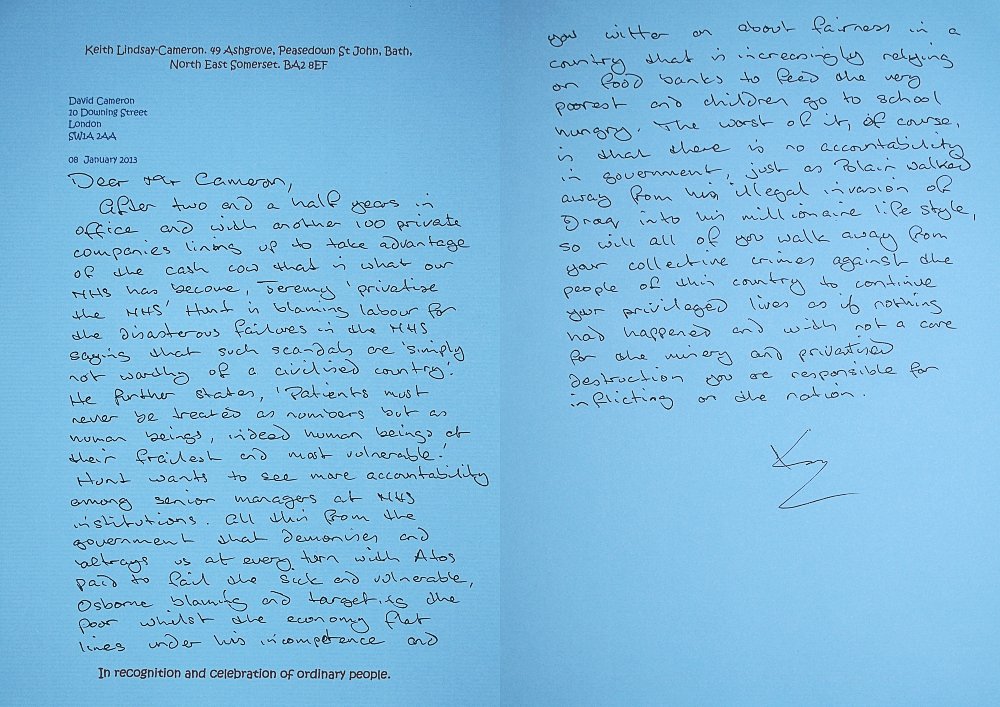 Keith Lindsay-Cameron. 49 Ashgrove, Peasedown St John, Bath,
North East Somerset. BA2 8EF
David Cameron
10 Downing Street
London
SW1A 2AA
08 January 2013
Dear Mr Cameron,
After two and a half years in
office and with another 100 private
companies lining up to take advantage
of the cash cow that is what our
NHS has become, Jeremy 'privatise
the NHS' Hunt is blaming labour for
the disasterous failures in the NHS
saying that such scandals are 'simply
not worthy of a civilised country'.
He further states, 'Patients must
never be treated as numbers but as
human beings, indeed human beings at
their frailest and most vulnerable.'
Hunt wants to see more accountability
among senior managers at NHS
institutions. All this from the
government that demonises and
betrays us at every turn with Atos
paid to fail the sick and vulnerable,
Osborne blaming and targeting the
poor whilst the economy flat
lines under his incompetence and
In recognition and celebration of ordinary people.
you witter on about fairness in a
country that is increasingly relying
on food banks to feed the very
poorest and children go to school
hungry. The worst of it, of course,
is that there is no accountability
in government, just as Blair walked
away from his illegal invasion of
Iraq into his millionaire life style,
so will all of you walk away from
your collective crimes against the
people of this country to continue
your privilaged lives as if nothing
had happened and with not a care
for the misery and privatised
destruction you are responsible for
inflicting on the nation.